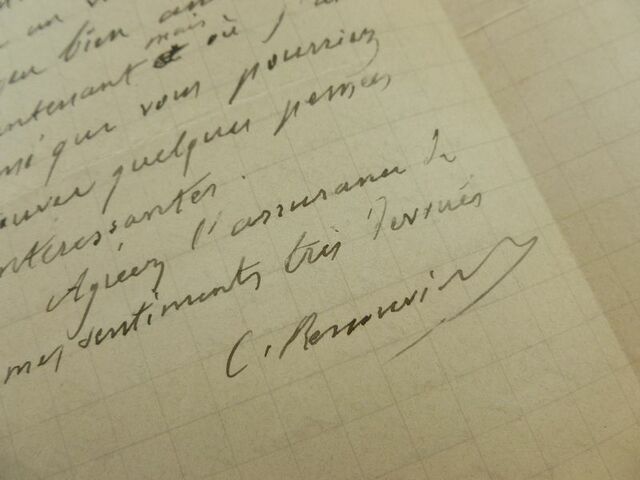 un
peu bien
mais
maintenant et où j'
que vous pourriez
trouver quelques pensées
intéressantes.
Agréez l'assurance de
mes sentiments très dévoués
C. Renouvier